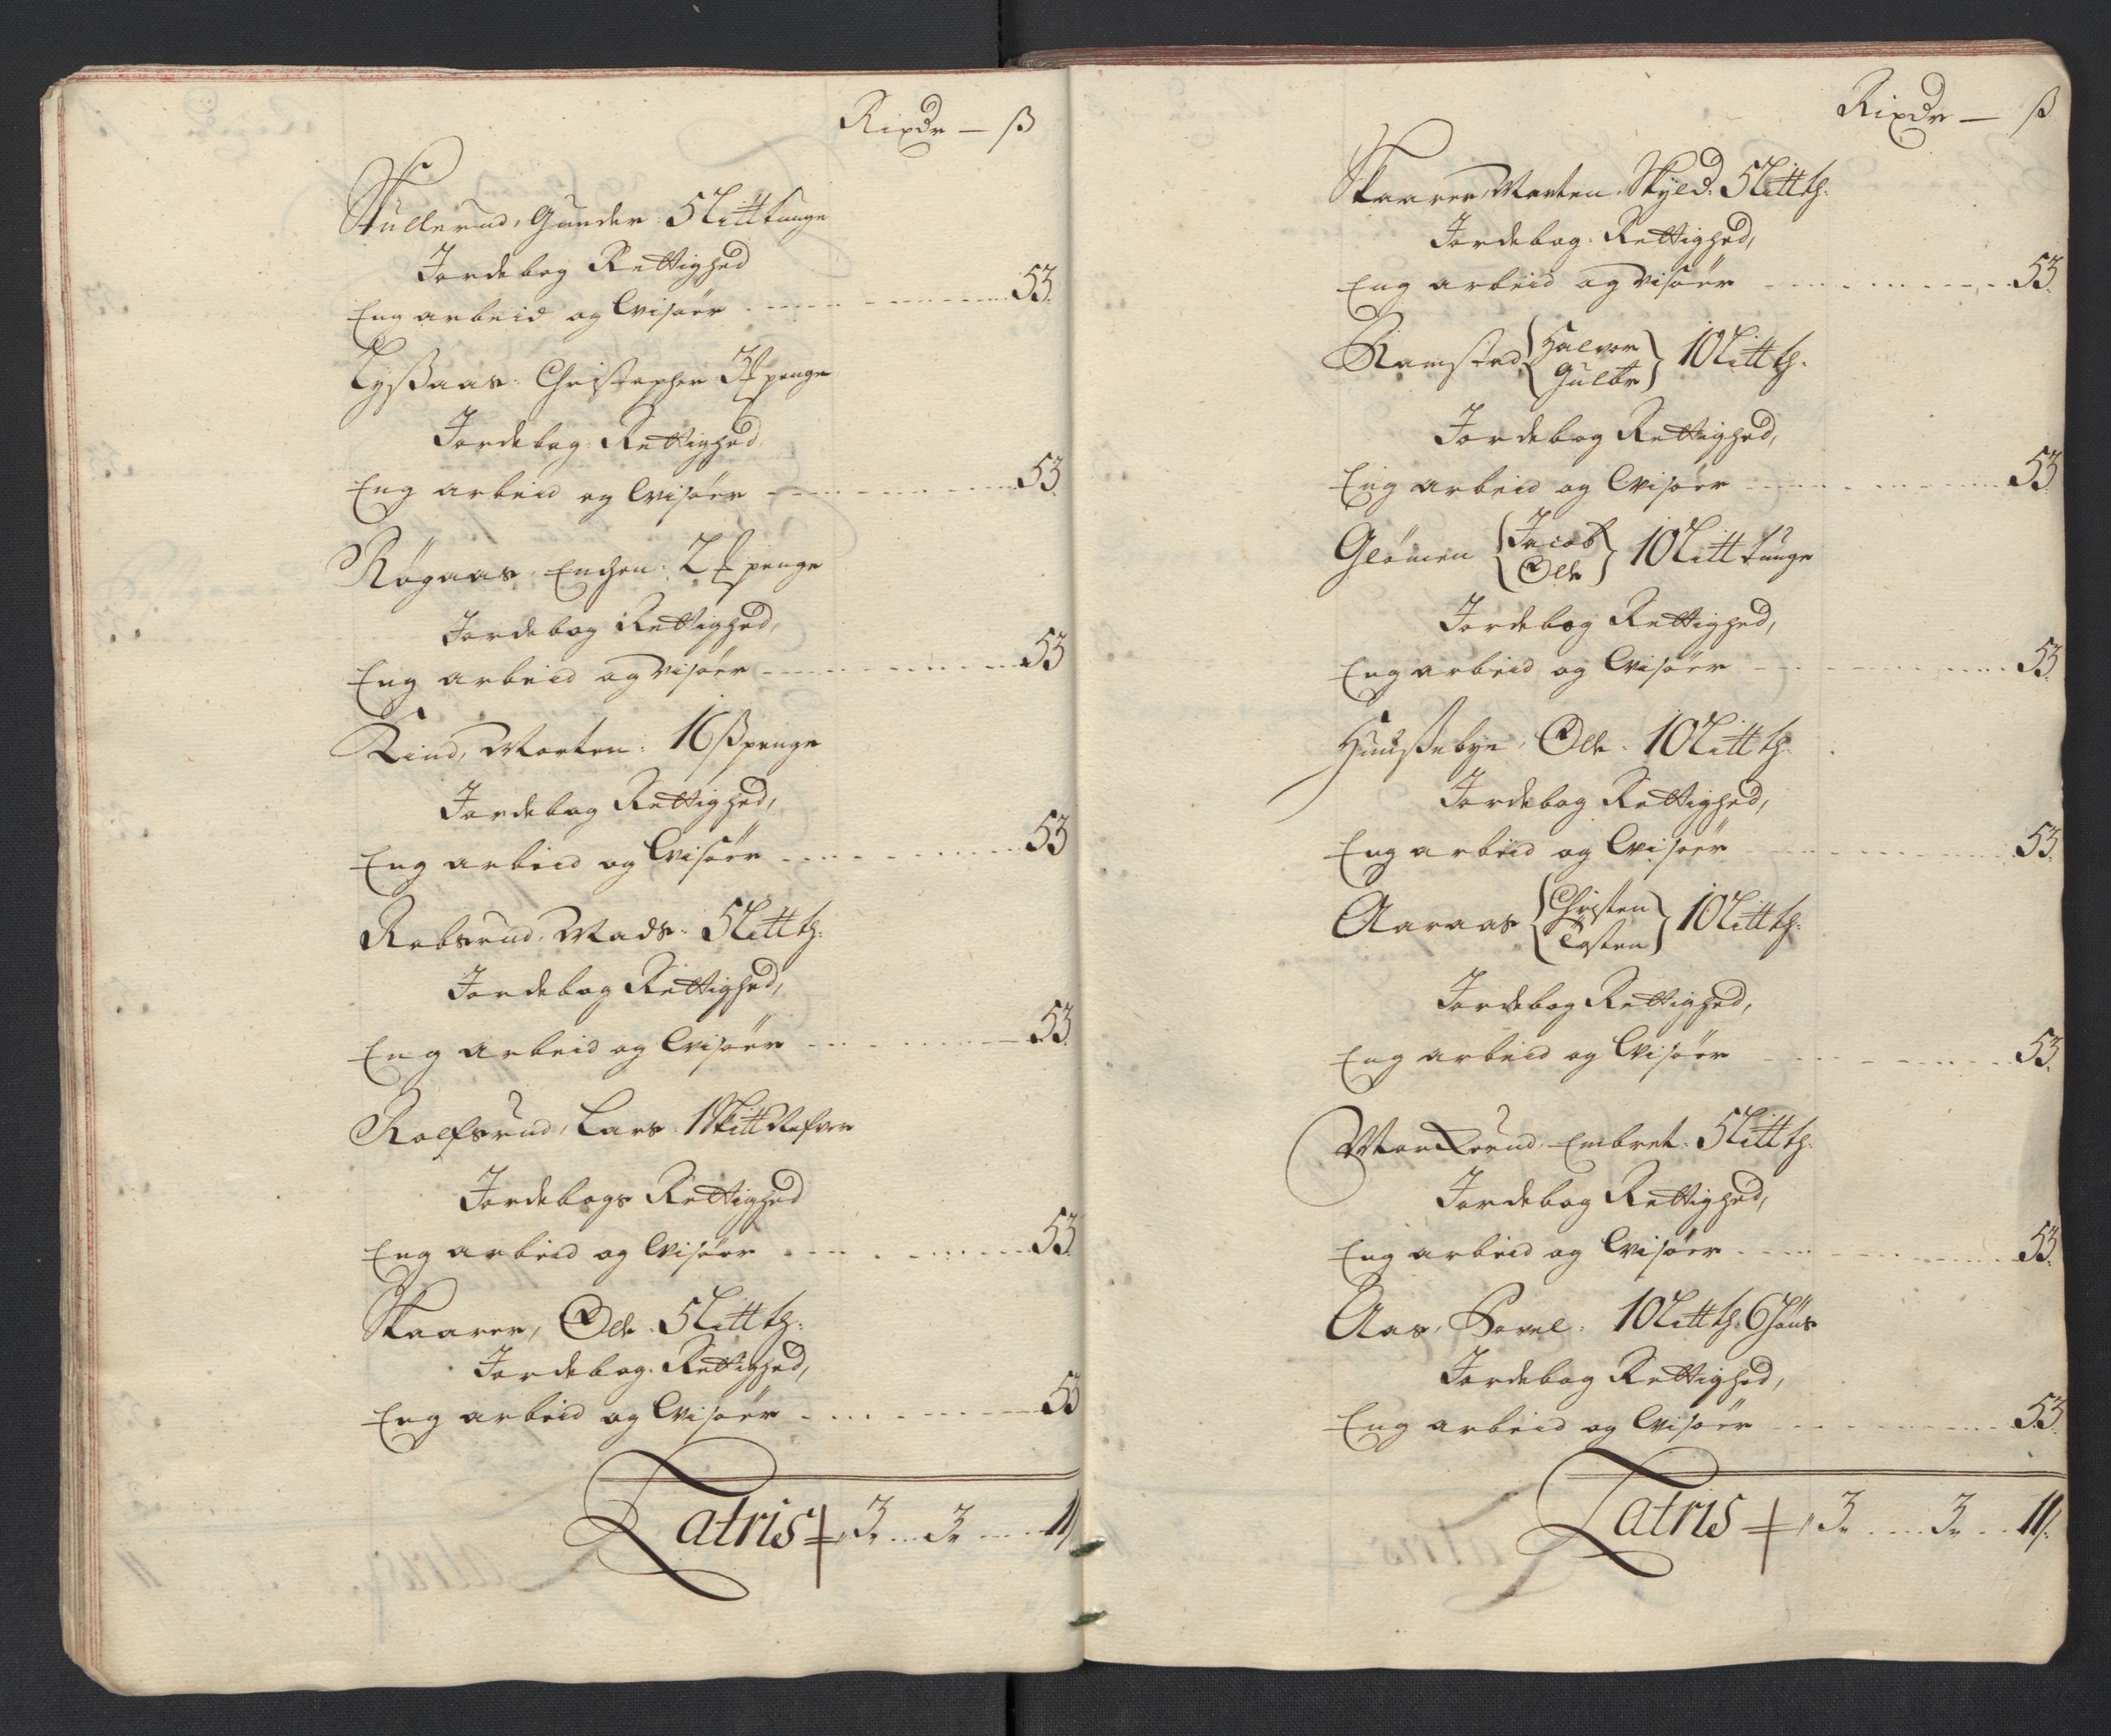 Rixdr — ß
Skullerud, Gunder 5 Litt tunge
Jordebog Rettighed
Eng arbeid og Wisöer 53.
Lyßaas Christopher 3 ℔ penge
Jordebog Rettighed
Eng arbeid og Wisöer 53.
Røgaas, 2 ℔ penge
Jordebog Rettighed,
Eng arbeid og Wisöer 53
Rind, Morten: 16 ß penge
Jordebog Rettighed,
Eng arbeid og Wisöer 53
Robsrud, Mads: 5 Litt tg:
Jordebog Rettighed,
Eng arbeid og Wisöer 53.
Rolfsrud, Lars 1 Skitt
Jordebogs Rettighed
Eng arbeid og Wisöer 53.
Skaarer, Ole: 5 Litt tg:
Jordebog Rettighed,
Eng arbeid og Wisöer 53
Latris 3. 3. 11/
Rixdr — ß
Skaarer, Morten, Skyld: 5 Litt tg:
Jordebog Rettighed,
Eng arbeid og Wisöer 53.
Ramstad { Halvor
Gulbr } 10 Litt tg:
Jordebog Rettighed,
Eng arbeid og Wisöer 53.
Glömen { Jacob
Ole } 10 Litt tunge
Jordebog Rettighed,
Eng arbeid og Wisöer 53.
Huußebye, Ole: 10 Litt tg:
Jordebog Rettighed,
Eng arbeid og Wisöer 53.
Aaraas { Christen
Tosten } 10 Litt tg:
Jordebog Rettighed,
Eng arbeid og Wisöer 53.
Morterud Embret: 5 Litt tg:
Jordebog Rettighed,
Eng arbeid og Wisöer 53.
Aas, Povel: 10 Litt tg: 6
Jordebog Rettighed,
Eng arbeid og Wisöer 53.
Latris 3. 3. 11/.